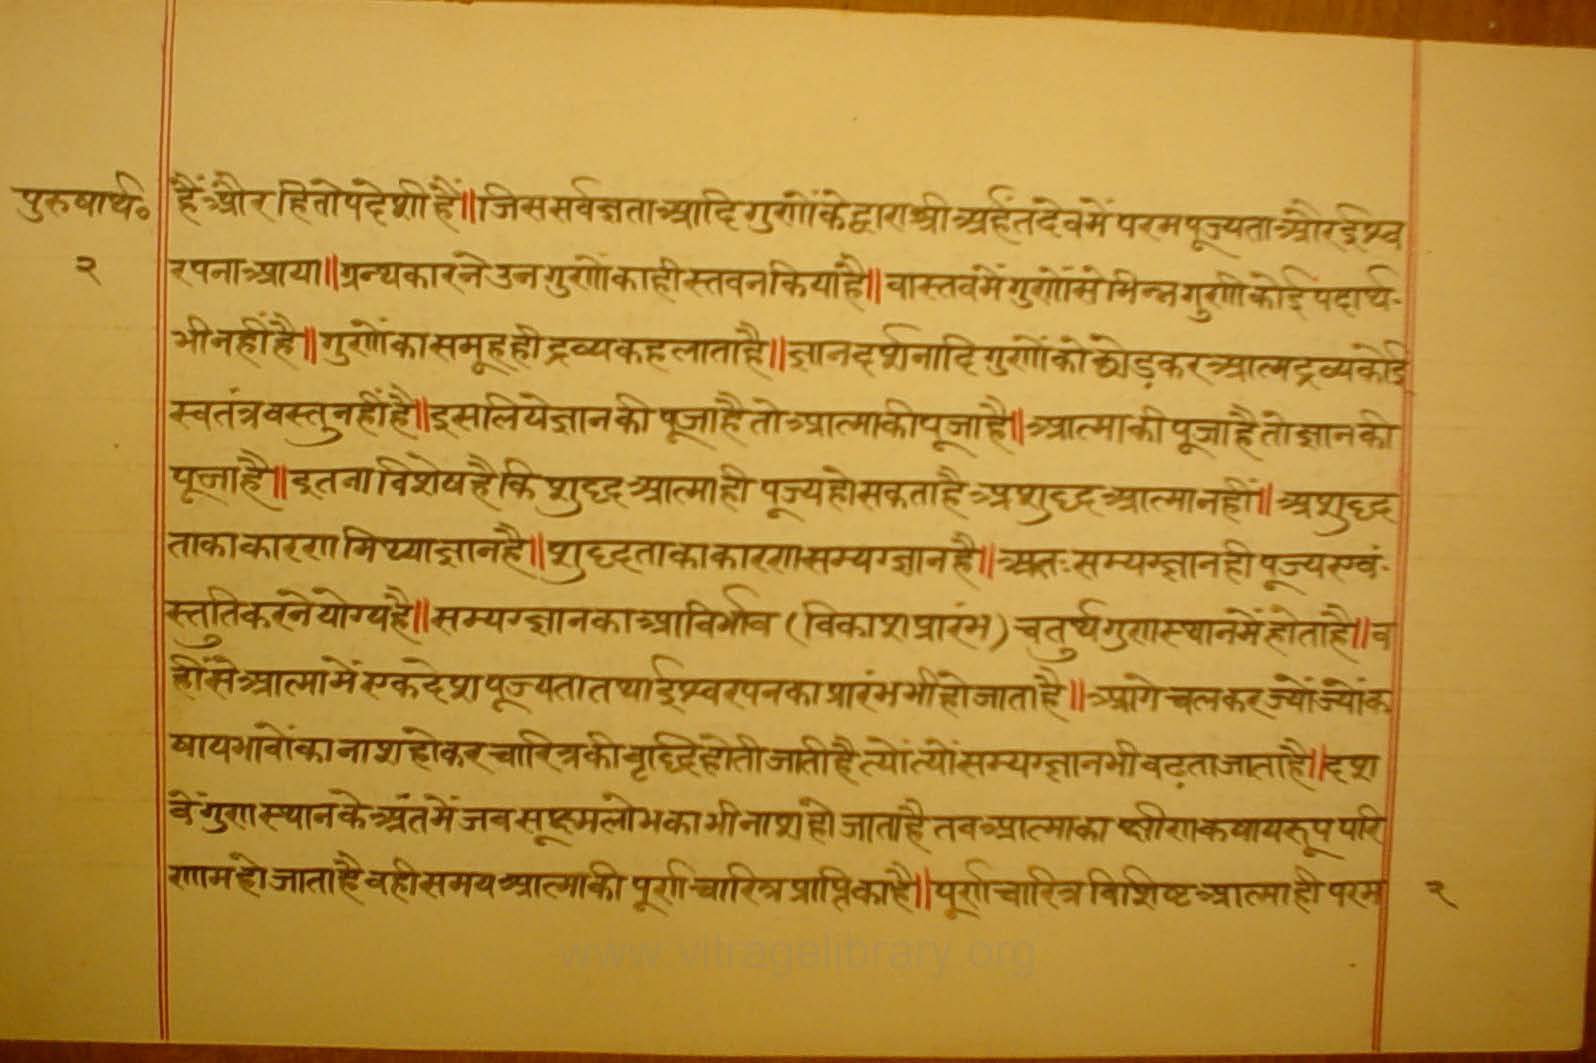 पुरुषार्थ॰
२
हैं और हितोपदेशी हैं॥ जिस सर्वज्ञता आदि गुणों के द्वारा श्री अर्हंत देव में परम पूज्यता और ईश्व
रपना आया॥ ग्रन्थकार ने उन गुणों का ही स्तवन किया है॥ वास्तव में गुणों से भिन्न गुणी कोई पदार्थ-
भी नहीं है॥ गुणों का समूह ही द्रव्य कहलाता है॥ ज्ञान दर्शनादि गुणों को छोड़कर आत्मद्रव्य कोई
स्वतंत्र वस्तु नहीं है॥ इसलिये ज्ञान की पूजा है तो आत्मा की पूजा है॥ आत्मा की पूजा है तो ज्ञान की
पूजा है॥ इतना विशेष है कि शुद्ध आत्मा ही पूज्य हो सकता है अशुद्ध आत्मा नहीं॥ अशुद्ध
ता का कारण मिथ्याज्ञान है॥ शुद्धता का कारण सम्यग्ज्ञान है॥ अतः सम्यग्ज्ञान ही पूज्य एवं-
स्तुति करने योग्य है॥ सम्यग्ज्ञान का आविर्भाव (विकाश प्रारंभ) चतुर्थ गुणस्थान में होता है॥ व
हीं से आत्मा में एकदेश पूज्यता तथा ईश्वरपन का प्रारंभ भी हो जाता है॥ आगे चलकर ज्यों ज्यों क
षायभावों का नाश होकर चारित्र की वृद्धि होती जाती है त्यों त्यों सम्यग्ज्ञान भी बढ़ता जाता है॥ दश
वें गुणस्थान के अंत में जब सूक्ष्म लोभ का भी नाश हो जाता है तब आत्मा का क्षीणकषायरूप परि
णाम हो जाता है वही समय आत्मा की पूर्ण चारित्र प्राप्ति का है॥ पूर्ण चारित्र विशिष्ट आत्मा ही परम
२
www.vitragelibrary.org